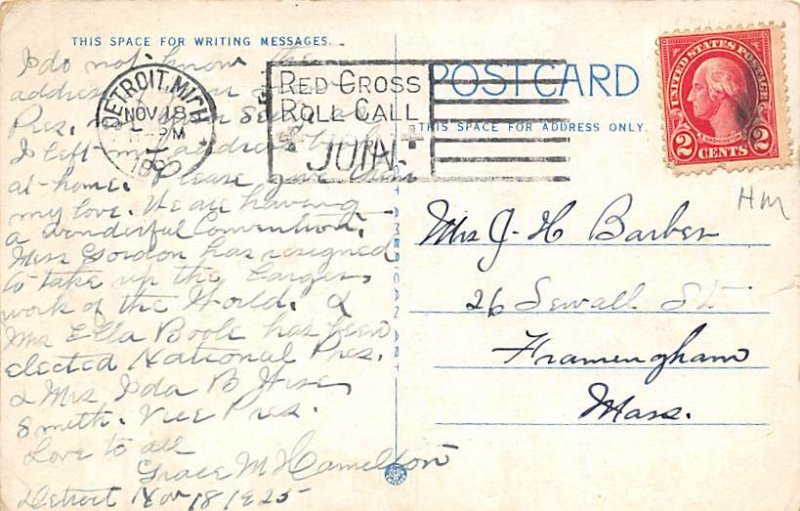 THIS SPACE FOR WRITING MESSAGES.
I do not know the
address of our
Pres.
I left my address book
at home. Please give them
my love. We are having
a wonderful Convention.
Miss Gordon has resigned
to take up the larger
work of the World. &
Mrs Ella Boole has been
elected National Pres.
& Mrs Ida B Wise
Smith. Vice Pres.
Love to all
Grace M Hamelton
Detroit Nov 18 1925
DETROIT, MICH
NOV 18
PM
RED CROSS
ROLL CALL
JOIN
POSTCARD
THIS SPACE FOR ADDRESS ONLY.
AMERICAN ART
UNITED STATES POSTAGE
WASHINGTON
2 CENTS 2
HM
Mrs J. H Barber
26 Sewall St
Framingham
Mass.